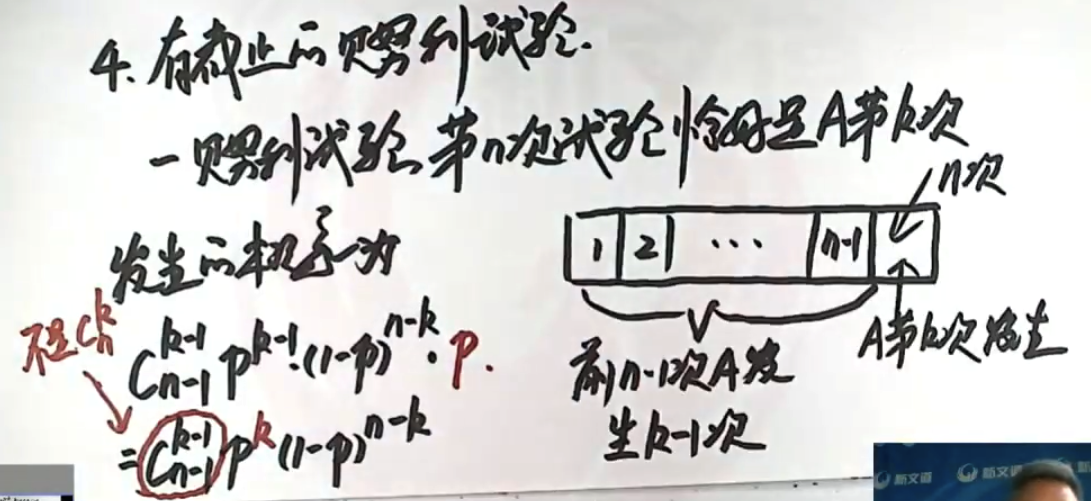 4. 有截止的贝努利试验.
—贝努利试验,第n次试验恰好是A第k次
发生的概率为
不是C_n^k
C_{n-1}^{k-1} p^{k-1}·(1-p)^{n-k}·p.
=C_{n-1}^{k-1} p^k (1-p)^{n-k}
n次
1 2 … n-1
前n-1次A发
生k-1次
A第k次发生
新文道 新文道